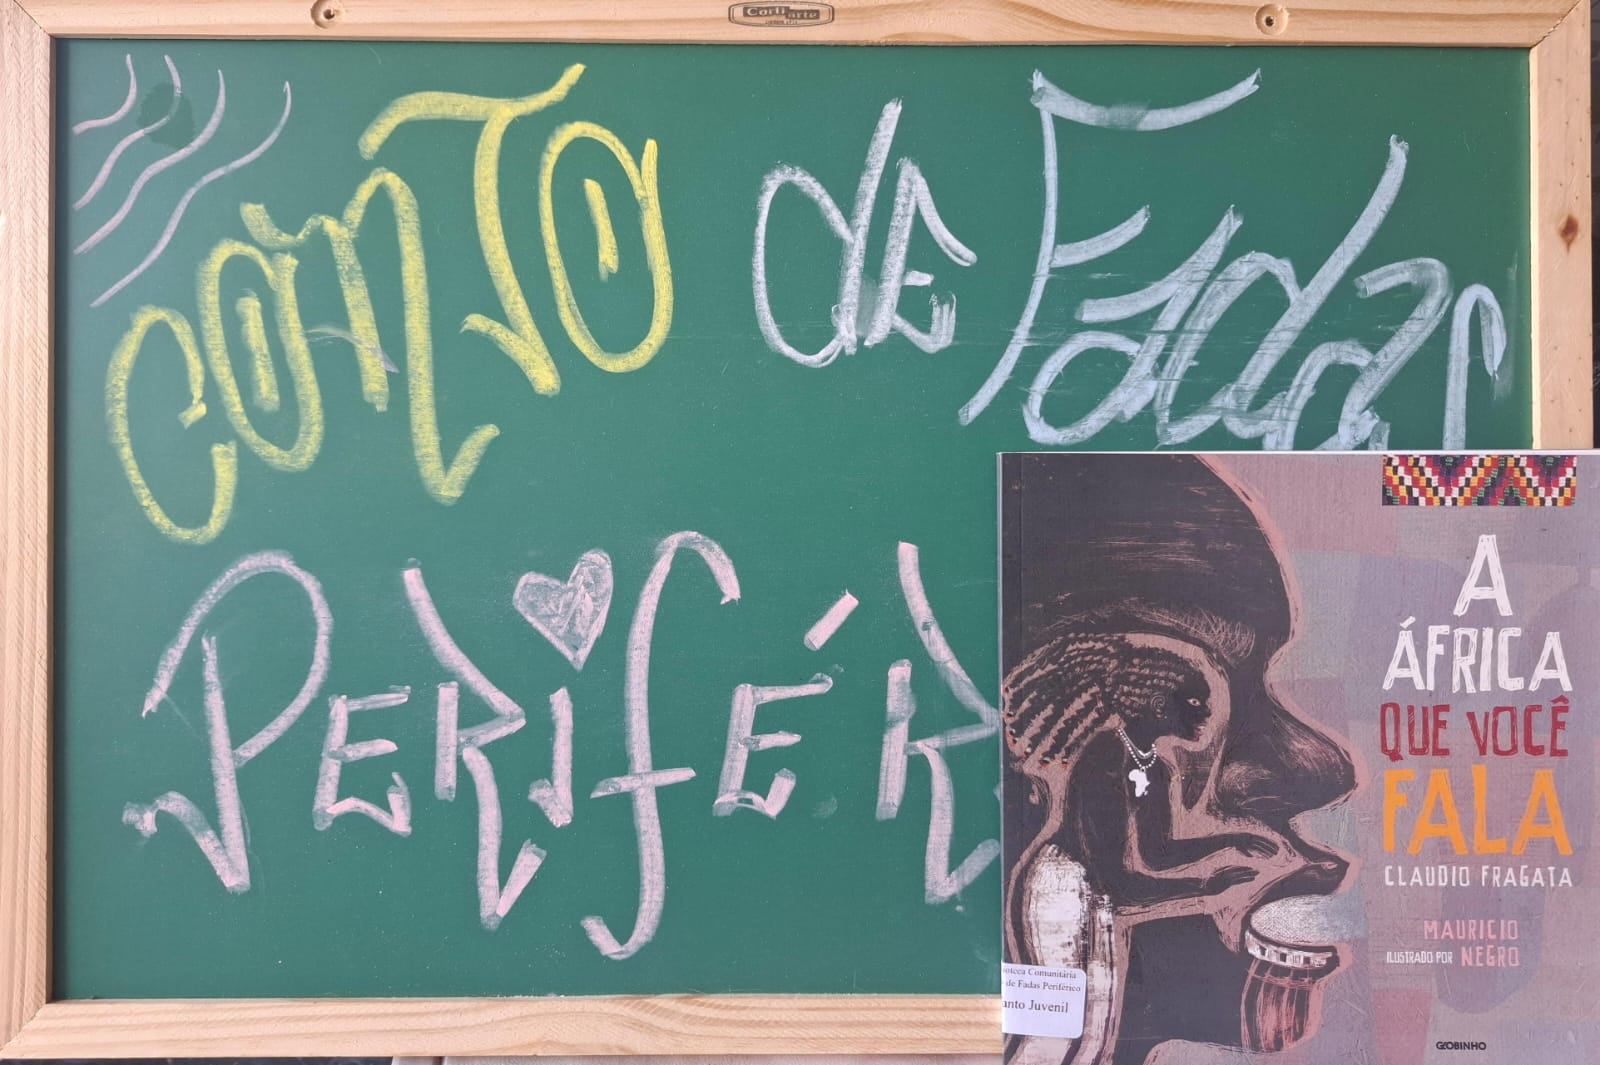 Corti arte
CONTO de Fadas
PERIFÉR
A
ÁFRICA
QUE VOCÊ
FALA
CLAUDIO FRAGATA
MAURICIO
ILUSTRADO POR NEGRO
oteca Comunitária
de Fadas Periférico
anto Juvenil
GLOBINHO